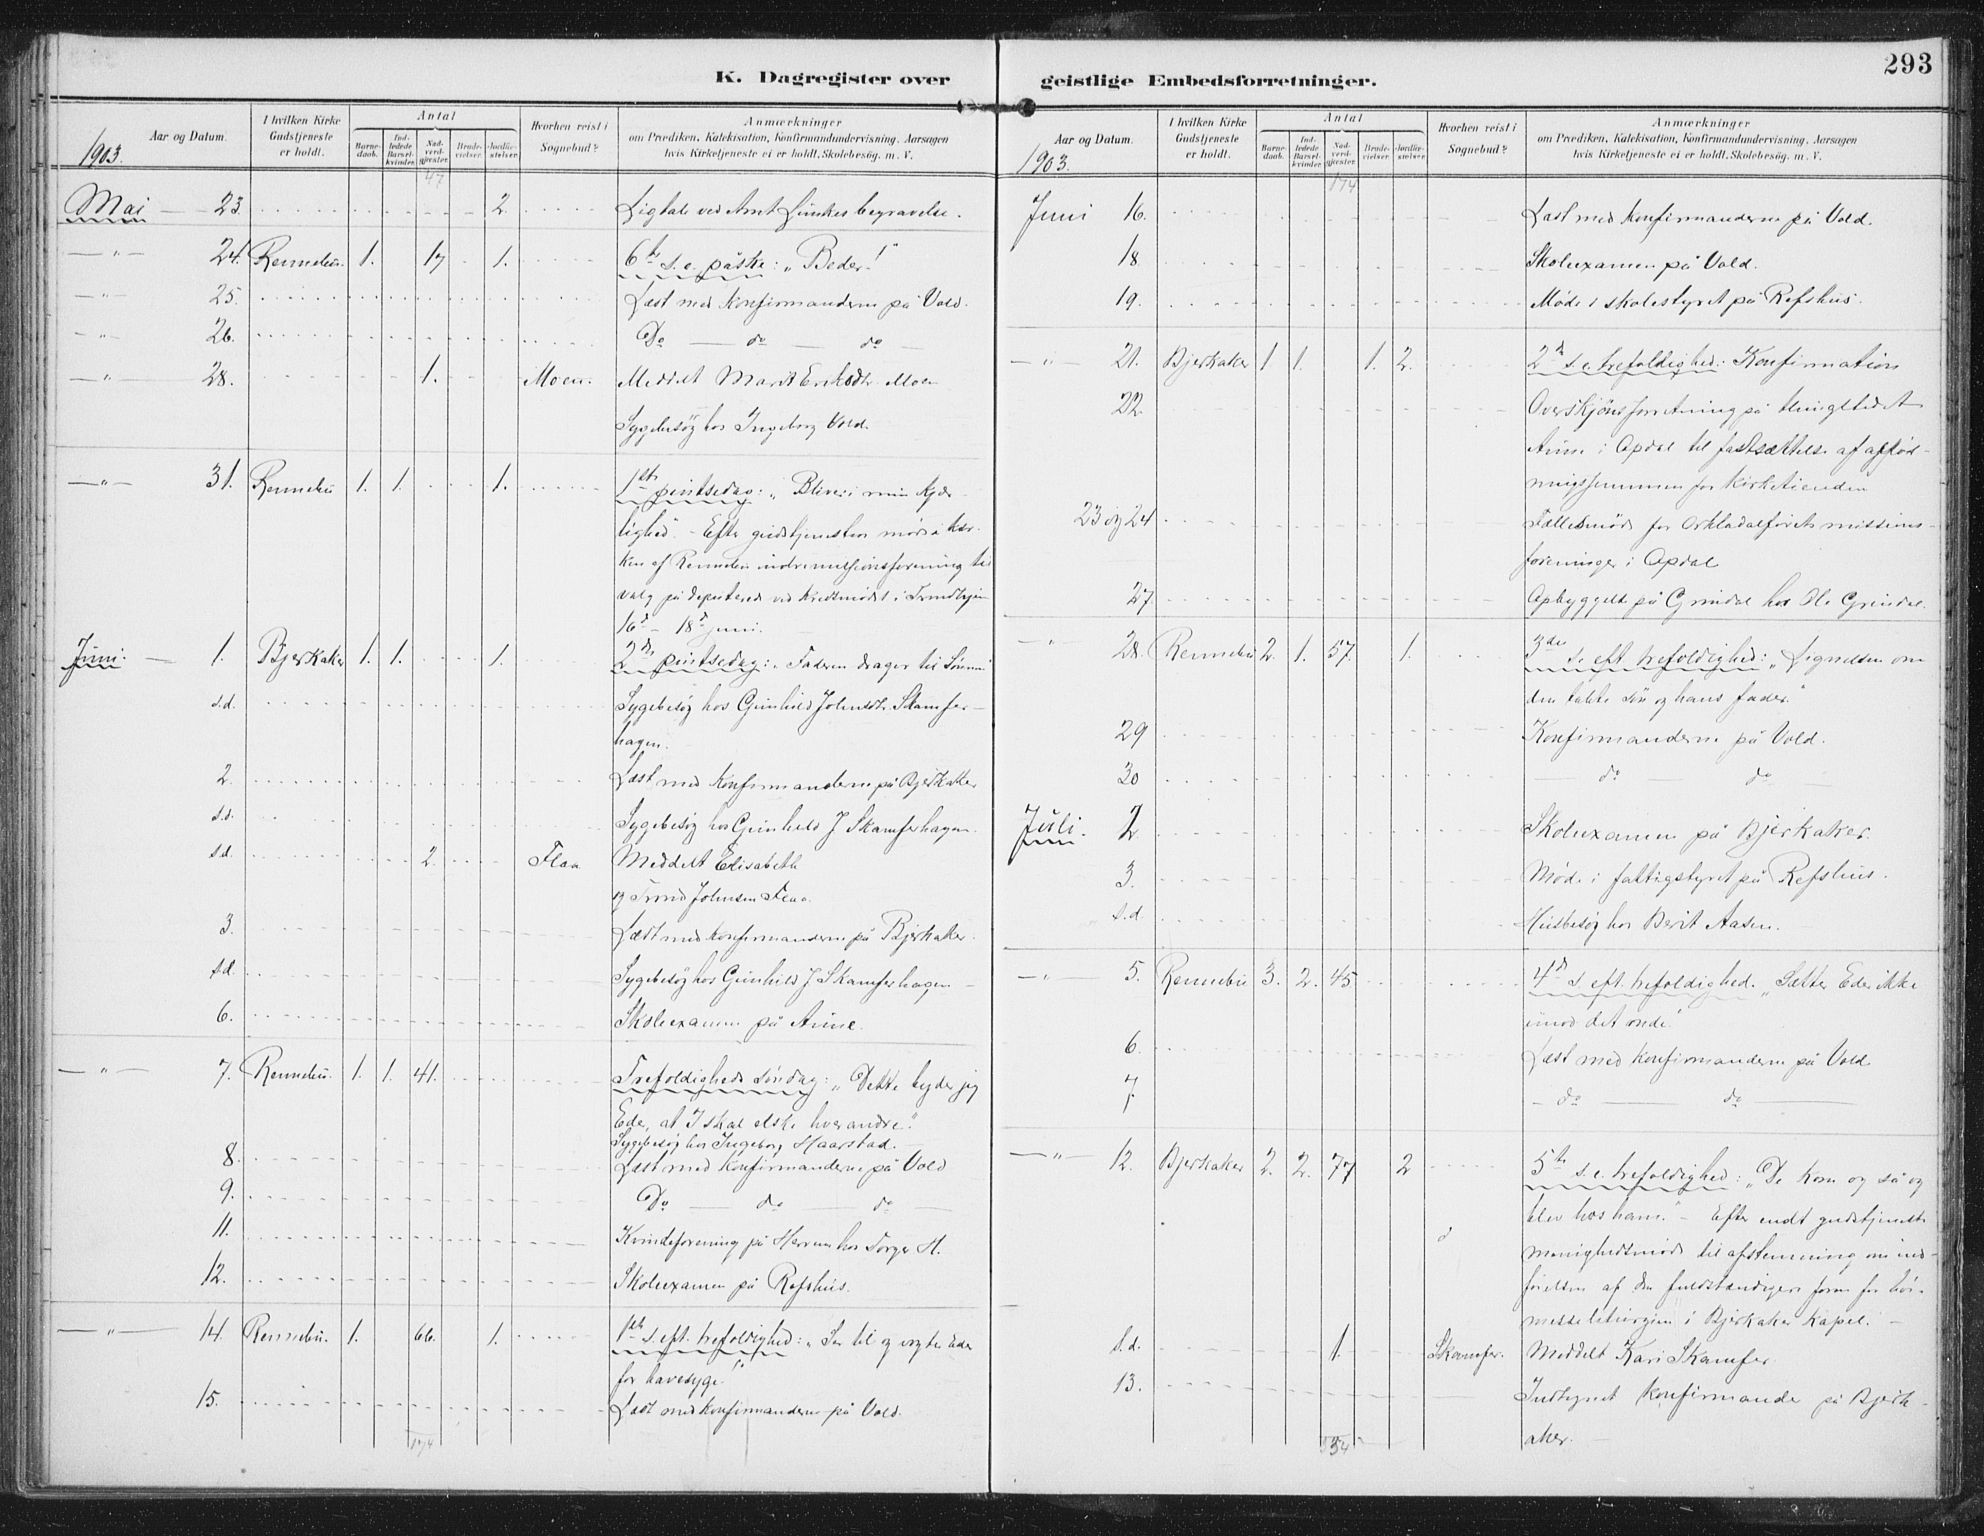 293
K. Dagregister over geistlige Embedsforretninger.
Aar og Datum.
I hvilken Kirke Gudstjeneste er holdt.
Antal
Barne-daab.
Ind-ledede Barsel-kvinder.
Nad-verd-gjester.
Brude-vielser.
Jordfæ-stelser.
Hvorhen reist i Sognebud?
Anmærkninger
om Prædiken, Katekisation, Konfirmandundervisning, Aarsagen
hvis Kirketjeneste ei er holdt, Skolebesøg. m. V.
1903.
47
Mai 23. 2. Ligtale ved Arnt Lunkes begravelse.
24. Rennebu. 1. 17 1. 6te s. e. påske: „Beder!"
25. Læst med konfirmanderne på Vold.
26. Do do do
28. 1. Moen. Meddelt Marit Eriksdtr. Moen
Sygebesög hos Ingeborg Vold.
31. Rennebu 1. 1. 1. 1ste pintsedag: „Bliver i min kjær-
lighed". - Efter gudstjenesten møde i kir-
ken af Rennebu indremissionsforening til
valg på deputerede ved kredsmödet i Trondhjem
16de - 18de juni.
Juni. 1. Bjerkaker 1. 1. 1. 2den pintsedag: „Faderen drager til Sönnen"
s.d. Sygebesög hos Gunhild Johnsdtr. Skamfer-
hagen.
2. Læst med konfirmanderne på Bjerkaker
s.d. Sygebesög hos Gunhild J Skamferhagen.
s.d. 2. Flaa Meddelt Elisabeth
og Trond Johnsen Flaa.
3. Læst med konfirmanderne på Bjerkaker.
s.d. Sygebesög hos Gunhild J Skamferhagen
6. Skoleexamen på Aune.
7. Rennebu. 1. 1. 41. Trefoldigheds söndag: „Dette byder jeg
Eder, at I skal elske hverandre".
Sygebesög hos Ingeborg Haarstad.
8. Læst med konfirmanderne på Vold
9. Do do do
11. Kvindeforening på Herrem hos Torger H.
12. Skoleexamen på Refshus.
14. Rennebu. 1. 66. 1. 1ste s. eft. trefoldighed: „Se til og vogter Eder
for havesyge!"
15. Læst med konfirmanderne på Vold.
174
Aar og Datum.
I hvilken Kirke Gudstjeneste er holdt.
Antal
Barne-daab.
Ind-ledede Barsel-kvinder.
Nad-verd-gjester.
Brude-vielser.
Jordfæ-stelser.
Hvorhen reist i Sognebud?
Anmærkninger
om Prædiken, Katekisation, Konfirmandundervisning, Aarsagen
hvis Kirketjeneste ei er holdt, Skolebesøg. m. V.
1903.
174
Juni 16. Læst med konfirmanderne på Vold.
18 Skoleexamen på Vold.
19. Møde i skolestyret på Refshus.
21. Bjerkaker 1 1. 1. 2. 2den s. e. trefoldighed: Konfirmation
22. Overskjönsforretning på thingstedet
Aune i Opdal til fastsættelse af aflös-
ningssummen for kirketienden
23 og 24 Fællesmöde for Orkladalförets missions-
foreninger i Opdal
27 Opbyggelse på Grindal hos Ole Grindal.
28. Rennebu 2. 1. 57. 1. 3die s. eft. trefoldighed: „Lignelsen om
den tabte sön og hans fader."
29 Konfirmanderne på Vold.
30 do do
Juli. 2. Skoleexamen på Bjerkaker.
3. Møde i fattigstyret på Refshus.
s.d Husbesög hos Berit Aasen.
5. Rennebu 3. 2. 45 4de s. eft. trefoldighed. „Sætter Eder ikke
imod det onde."
6. Læst med konfirmanderne på Vold
7 do do
12. Bjerkaker 2. 2. 77 2 5te s. e. trefoldighed: „De kom og så og
blev hos ham." - Efter endt gudstjeneste
menighedsmöde til afstemning om ind-
förelsen af den fuldstændigere form for höi-
messeliturgien i Bjerkaker kapel. -
s.d. 1. Skamfer. Meddelt Kari Skamfer
13. Indtegnet konfirmander på Bjerk-
aker.
354